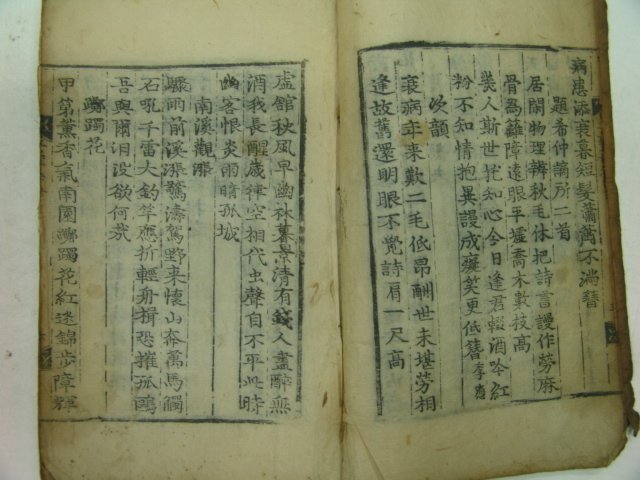 病患添衰暮短髮蕭蕭不滿簪
題希仲謫所二首
居閑物理辨秋毛休把詩言謾作勞麻
骨爲籬障遠眼平墟喬木數枝高
幾人斯世抱知心今日逢君輟酒吟紅
粉不知情抱異謾成癡笑更低簪李
次韻
衰病年來歎二毛低昂酬世未堪勞相
逢故舊還明眼不覺詩肩一尺高
虛館秋風早幽林暮景淸有錢人盡醉無
酒我長醒歲律空相代虫聲自不平此時
幽客恨炎雨暗孤城
南溪觀漲
驟雨前溪漲驚濤駕野來懷山奔萬馬觸
石吼千雷大釣竿應折輕舟楫恐摧孤鷗
吾與爾汨沒欲何哉
躑躅花
甲第薰香氣南園躑躅花紅迷錦步障輝